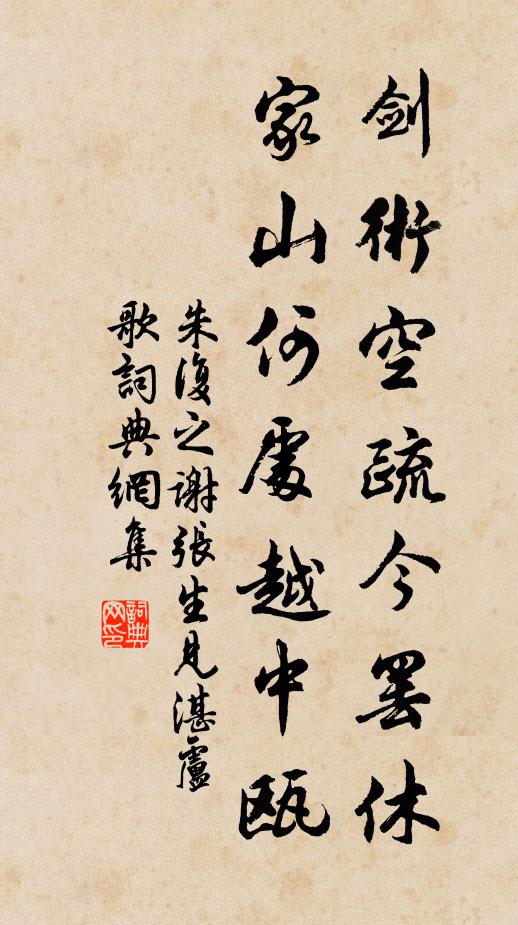 劍術空疏今罢休
家山何處越中甌
朱復之謝張生見湛盧
歌詞典網集
詞典网印